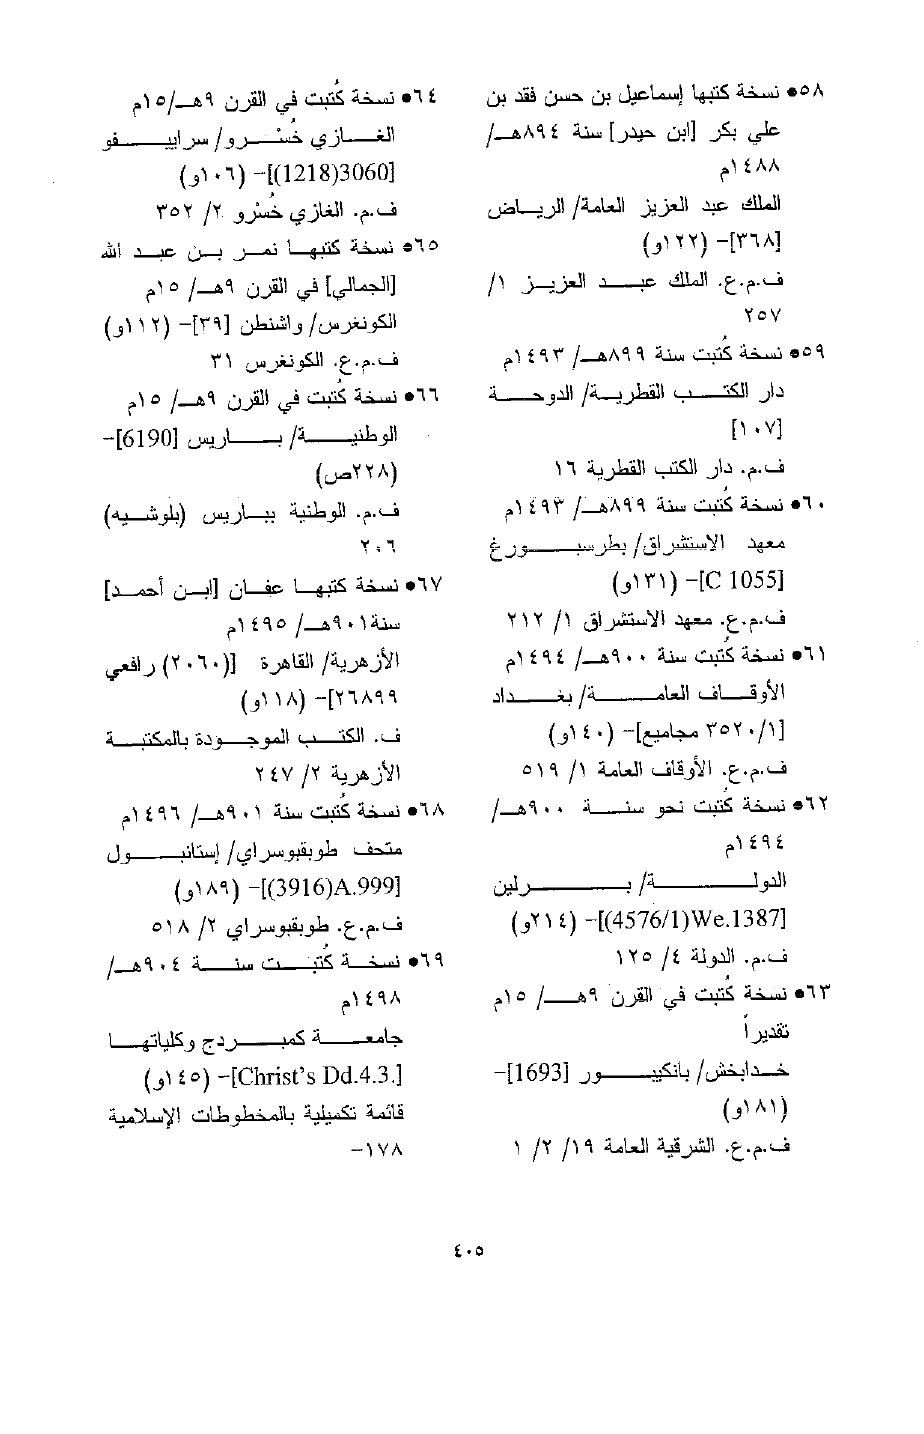 ٥٨● نسخة كتبها إسماعيل بن حسن فقد بن
علي بكر [ابن حيدر] سنة ٨٩٤هـ/
١٤٨٨م
الملك عبد العزيز العامة/ الرياض
[٣٦٨]- (١٢٢و)
ف.م.ع. الملك عبد العزيز ١/
٢٥٧
٥٩● نسخة كُتبت سنة ٨٩٩هـ/ ١٤٩٣م
دار الكتب القطرية/ الدوحة
[١٠٧]
ف.م. دار الكتب القطرية ١٦
٦٠● نسخة كُتبت سنة ٨٩٩هـ/ ١٤٩٣م
معهد الاستشراق/ بطرسبورغ
[C 1055]- (١٣١و)
ف.م.ع. معهد الاستشراق ١/ ٢١٢
٦١● نسخة كُتبت سنة ٩٠٠هـ/ ١٤٩٤م
الأوقاف العامة/ بغداد
[٣٥٢٠/١ مجاميع]- (١٤٠و)
ف.م.ع. الأوقاف العامة ١/ ٥١٩
٦٢● نسخة كُتبت نحو سنة ٩٠٠هـ/
١٤٩٤م
الدولة/ برلين
[(4576/1)We.1387]- (٢١٤و)
ف.م. الدولة ٤/ ١٢٥
٦٣● نسخة كُتبت في القرن ٩هـ/ ١٥م
تقديراً
خدابخش/ بانكيبور [1693]-
(١٨١و)
ف.م.ع. الشرقية العامة ١٩/ ٢/ ١
٦٤● نسخة كُتبت في القرن ٩هـ/١٥م
الغازي خُسْرو/ سراييفو
[3060(1218)]- (١٠٦و)
ف.م. الغازي خُسْرو ٢/ ٣٥٢
٦٥● نسخة كتبها نمر بن عبد الله
[الجمالي] في القرن ٩هـ/ ١٥م
الكونغرس/ واشنطن [٣٩]- (١١٢و)
ف.م.ع. الكونغرس ٣١
٦٦● نسخة كُتبت في القرن ٩هـ/ ١٥م
الوطنية/ باريس [6190]-
(٢٢٨ص)
ف.م. الوطنية بباريس (بلوشيه)
٢٠٦
٦٧● نسخة كتبها عفان [ابن أحمد]
سنة٩٠١هـ/ ١٤٩٥م
الأزهرية/ القاهرة [(٢٠٦٠) رافعي
٢٦٨٩٩]- (١١٨و)
ف. الكتب الموجودة بالمكتبة
الأزهرية ٢/ ٢٤٧
٦٨● نسخة كُتبت سنة ٩٠١هـ/ ١٤٩٦م
متحف طوبقبوسراي/ إستانبول
[(3916)A.999]- (١٨٩و)
ف.م.ع. طوبقبوسراي ٢/ ٥١٨
٦٩● نسخة كُتبت سنة ٩٠٤هـ/
١٤٩٨م
جامعة كمبردج وكلياتها
[Christ's Dd.4.3.]- (١٤٥و)
قائمة تكميلية بالمخطوطات الإسلامية
١٧٨-
٤٠٥